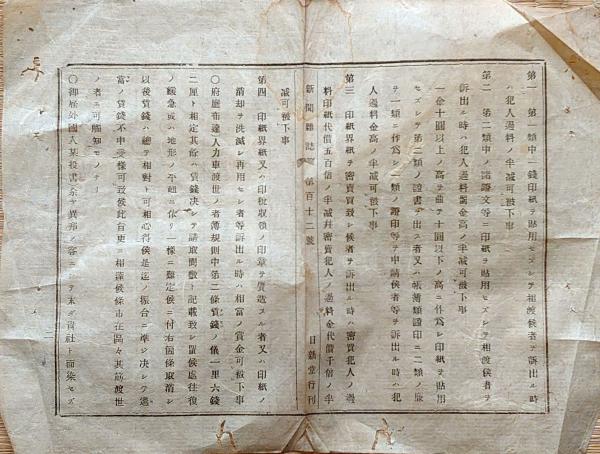 第一 第一類中一錢印紙ヲ貼用セズシテ相渡候者ヲ訴出ル時
ハ犯人過料ノ半減可被下事
第二 第一類中ノ諸證文等ニ印紙ヲ貼用セズシテ相渡候者ヲ
訴出ル時ハ犯人過料罰金高ノ半減可被下事
一金十圓以上ノ高ヲ曲テ十圓以下ノ高ニ作爲シ印紙ヲ貼用
セズシテ第二類ノ證書ヲ出ス者又ハ帳簿類證印モ二類ノ
ヲ一類ニ作爲シ一類ノ證印等ヲ申請候者等ヲ訴出ル時ハ犯
人過料金高ノ半減可被下事
第三 印紙界紙ヲ密賣買致シ候者ヲ訴出ル時ハ密賣犯人ノ過
料印紙代價五百倍ノ半減幷密買犯人ノ過料金代價千倍ノ半
新聞雜誌 第百十二號 日新堂行刊
減可被下事
第四 印紙界紙又ハ印税取領ノ印章ヲ贋造スル者又ハ印紙ノ
消却ヲ洗滅シ再用セシ者等訴出ル時ハ相當ノ賞金可被下事
〇府廳布達人力車渡世ノ者薄規則中第二條賃錢ノ儀一里六錢
二厘ト相定其餘ハ賃錢決シテ請取間敷ト記載致シ置候處往復
ノ緩急或ハ地形ノ平坦ニ依リ一樣ニ難定候ニ付右個條取消シ
以後賃錢ハ總テ相對ト可相心得候是迄ノ振合ニ準シ決シテ過
當ノ賃錢不申受樣可致候此旨更ニ相達候條市在區々其筋渡世
ノ者ニ可觸知モノナリ
〇御雇外國人某投書 余ヤ異邦ノ客ニシテ未ダ貴社ト面染セズ